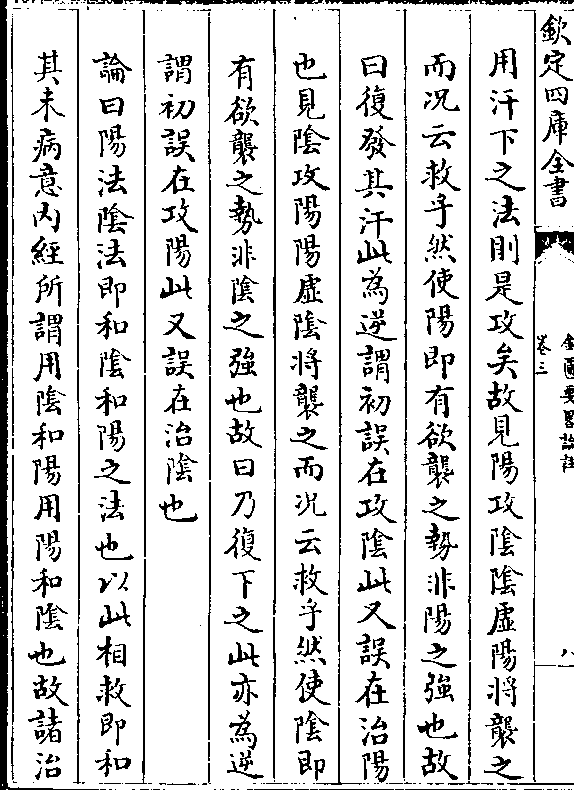 欽定四庫全書
金匱要畧論註
卷三
八
用汗下之法則是攻矣故見陽攻陰陰虛陽將襲之
而况云救乎然使陽即有欲襲之勢非陽之強也故
曰復發其汗此為逆謂初誤在攻陰此又誤在治陽
也見陰攻陽陽虛陰將襲之而况云救乎然使陰即
有欲襲之勢非陰之強也故曰乃復下之此亦為逆
謂初誤在攻陽此又誤在治陰也
論曰陽法陰法即和陰和陽之法也以此相救即和
其未病意内經所謂用陰和陽用陽和陰也故諸治